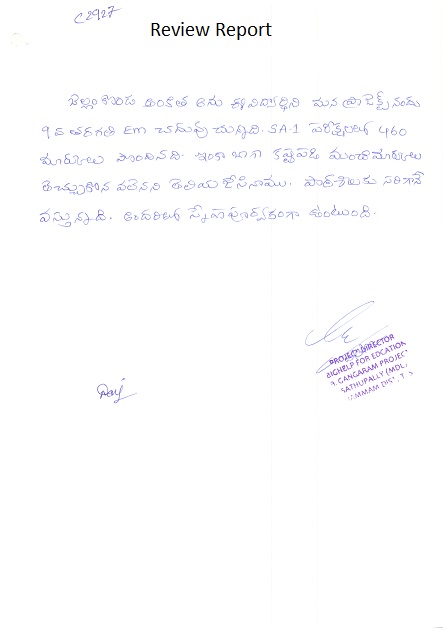 C2927
Review Report
జెల్లంకొండ అంకిత అను ఈ విద్యార్థిని మన ప్రాజెక్ట్ నందు
9వ తరగతి EM చదువు చున్నది. SA-1 పరీక్షలలో 460
మార్కులు పొందినది. ఇంకా బాగా కష్టపడి మంచి మార్కులు
తెచ్చుకొన వలెనని తెలియజేసినాము. పాఠశాలకు సరిగానే
వస్తున్నది. అందరితో స్నేహపూర్వకంగా ఉంటుంది.
PROJECT DIRECTOR
BIGHELP FOR EDCATION
GANGARAM PROJEC
SATHUPALLY (MDL.)